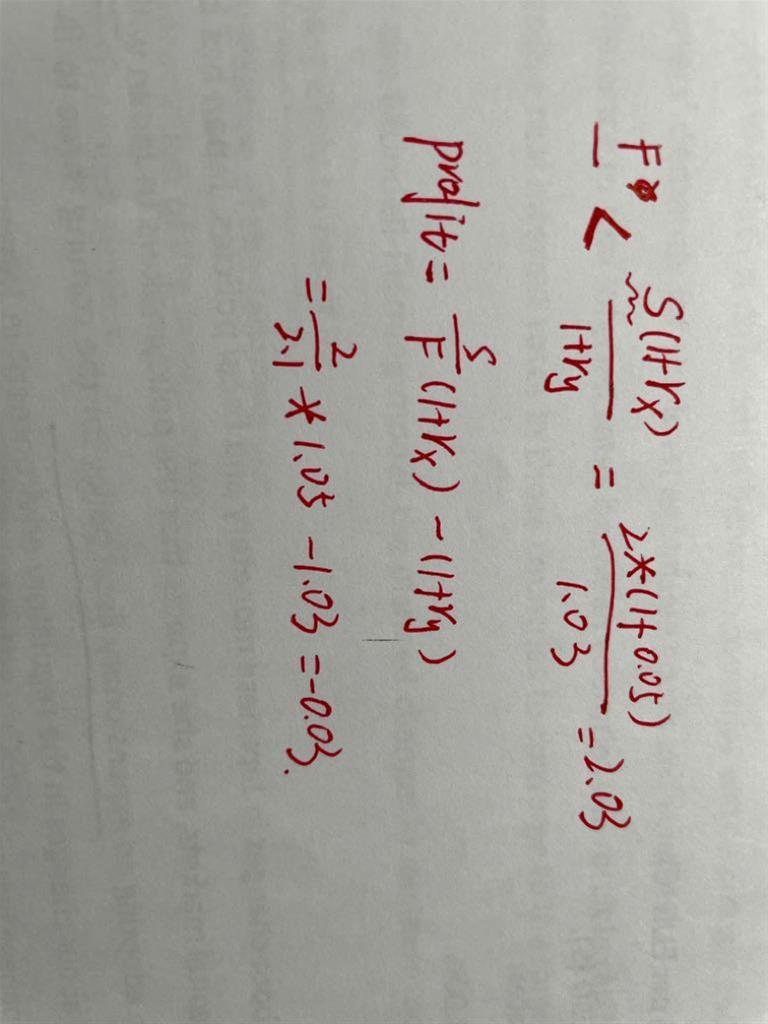 F < S(1+rx) / 1+ry = 2*(1+0.05) / 1.03 = 2.03
profit = S/F (1+rx) - (1+ry)
= 2/2.1 * 1.05 - 1.03 = -0.03.